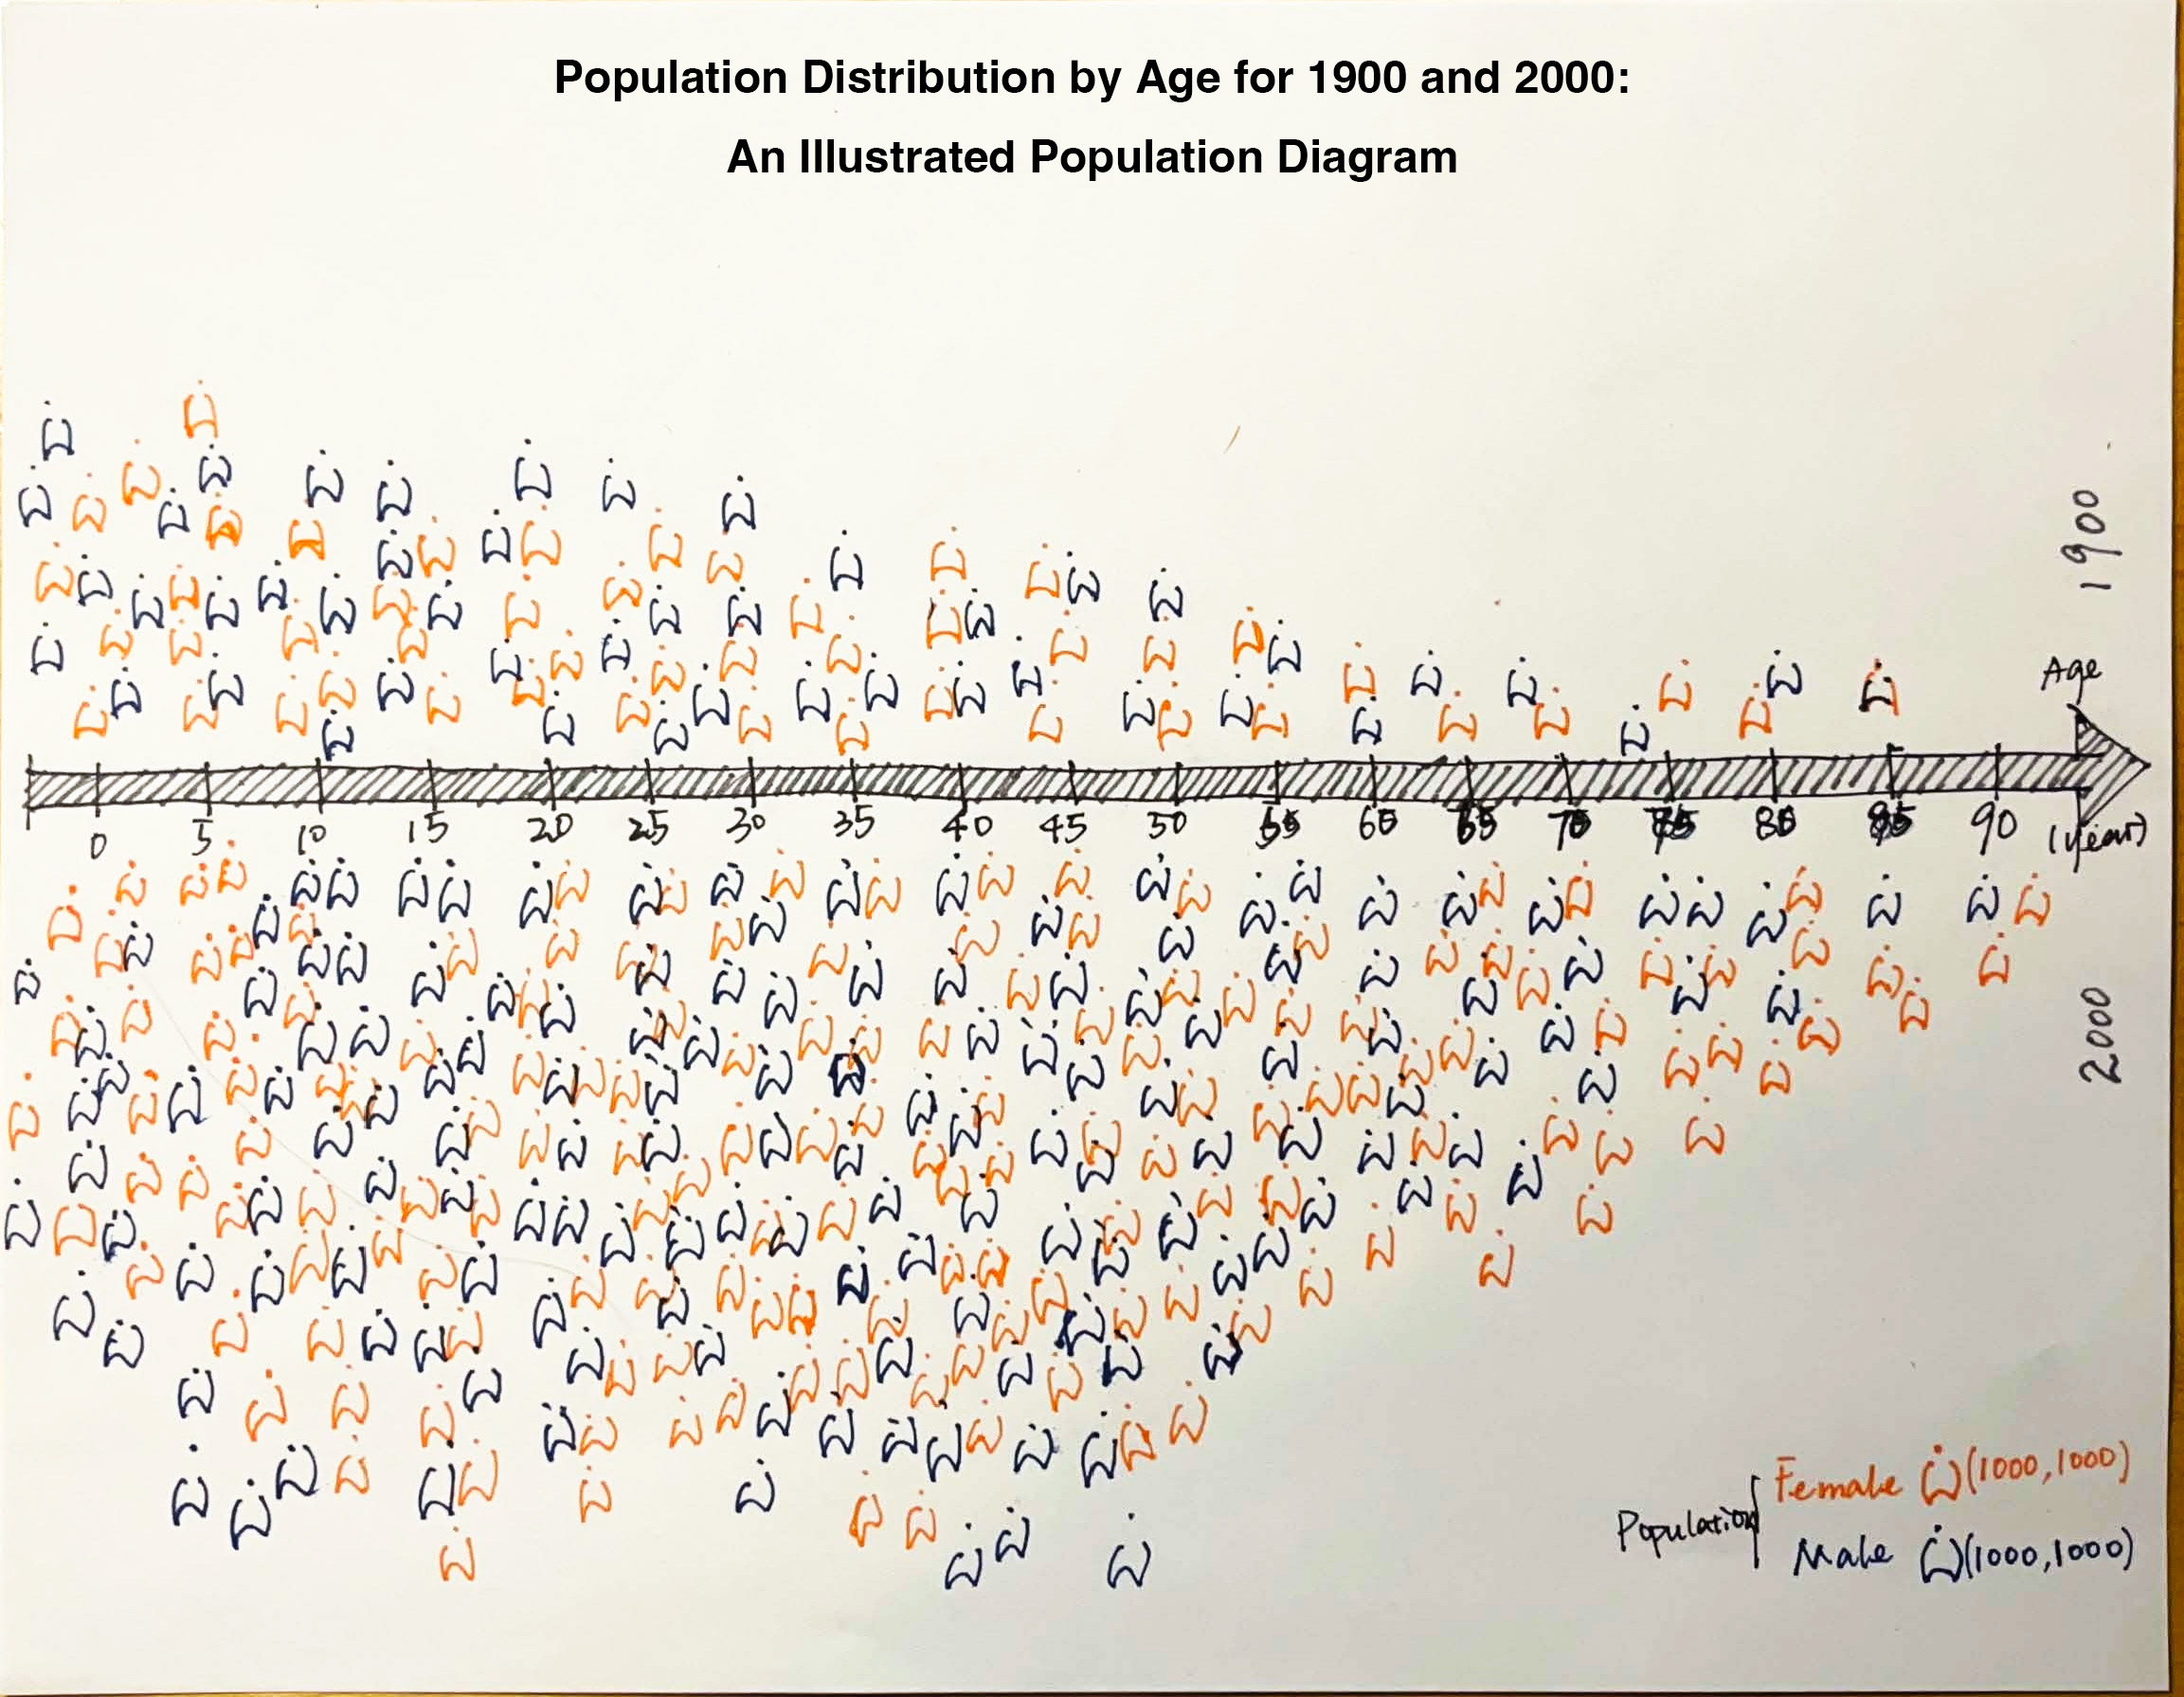 Population Distribution by Age for 1900 and 2000:
An Illustrated Population Diagram
1900
Age
0 5 10 15 20 25 30 35 40 45 50 55 60 65 70 75 80 85 90 (year)
2000
Population
Female (1000,1000)
Male (1000,1000)